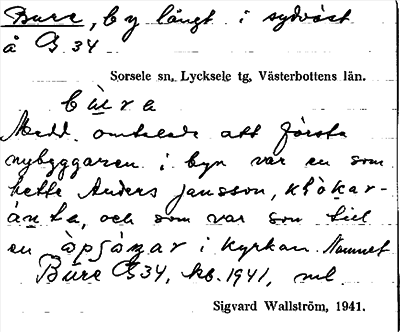 Bure, by långt i sydväst
å G 34
Sorsele sn, Lycksele tg, Västerbottens län.
bùra
Medd. omtalade att första
nybyggaren i byn var en som
hette Anders Jansson, klòkar-
ánta, och som var son till
en òpsòŋar i kyrkan. Namnet
Bure G34, kb. 1941, ml.
Sigvard Wallström, 1941.